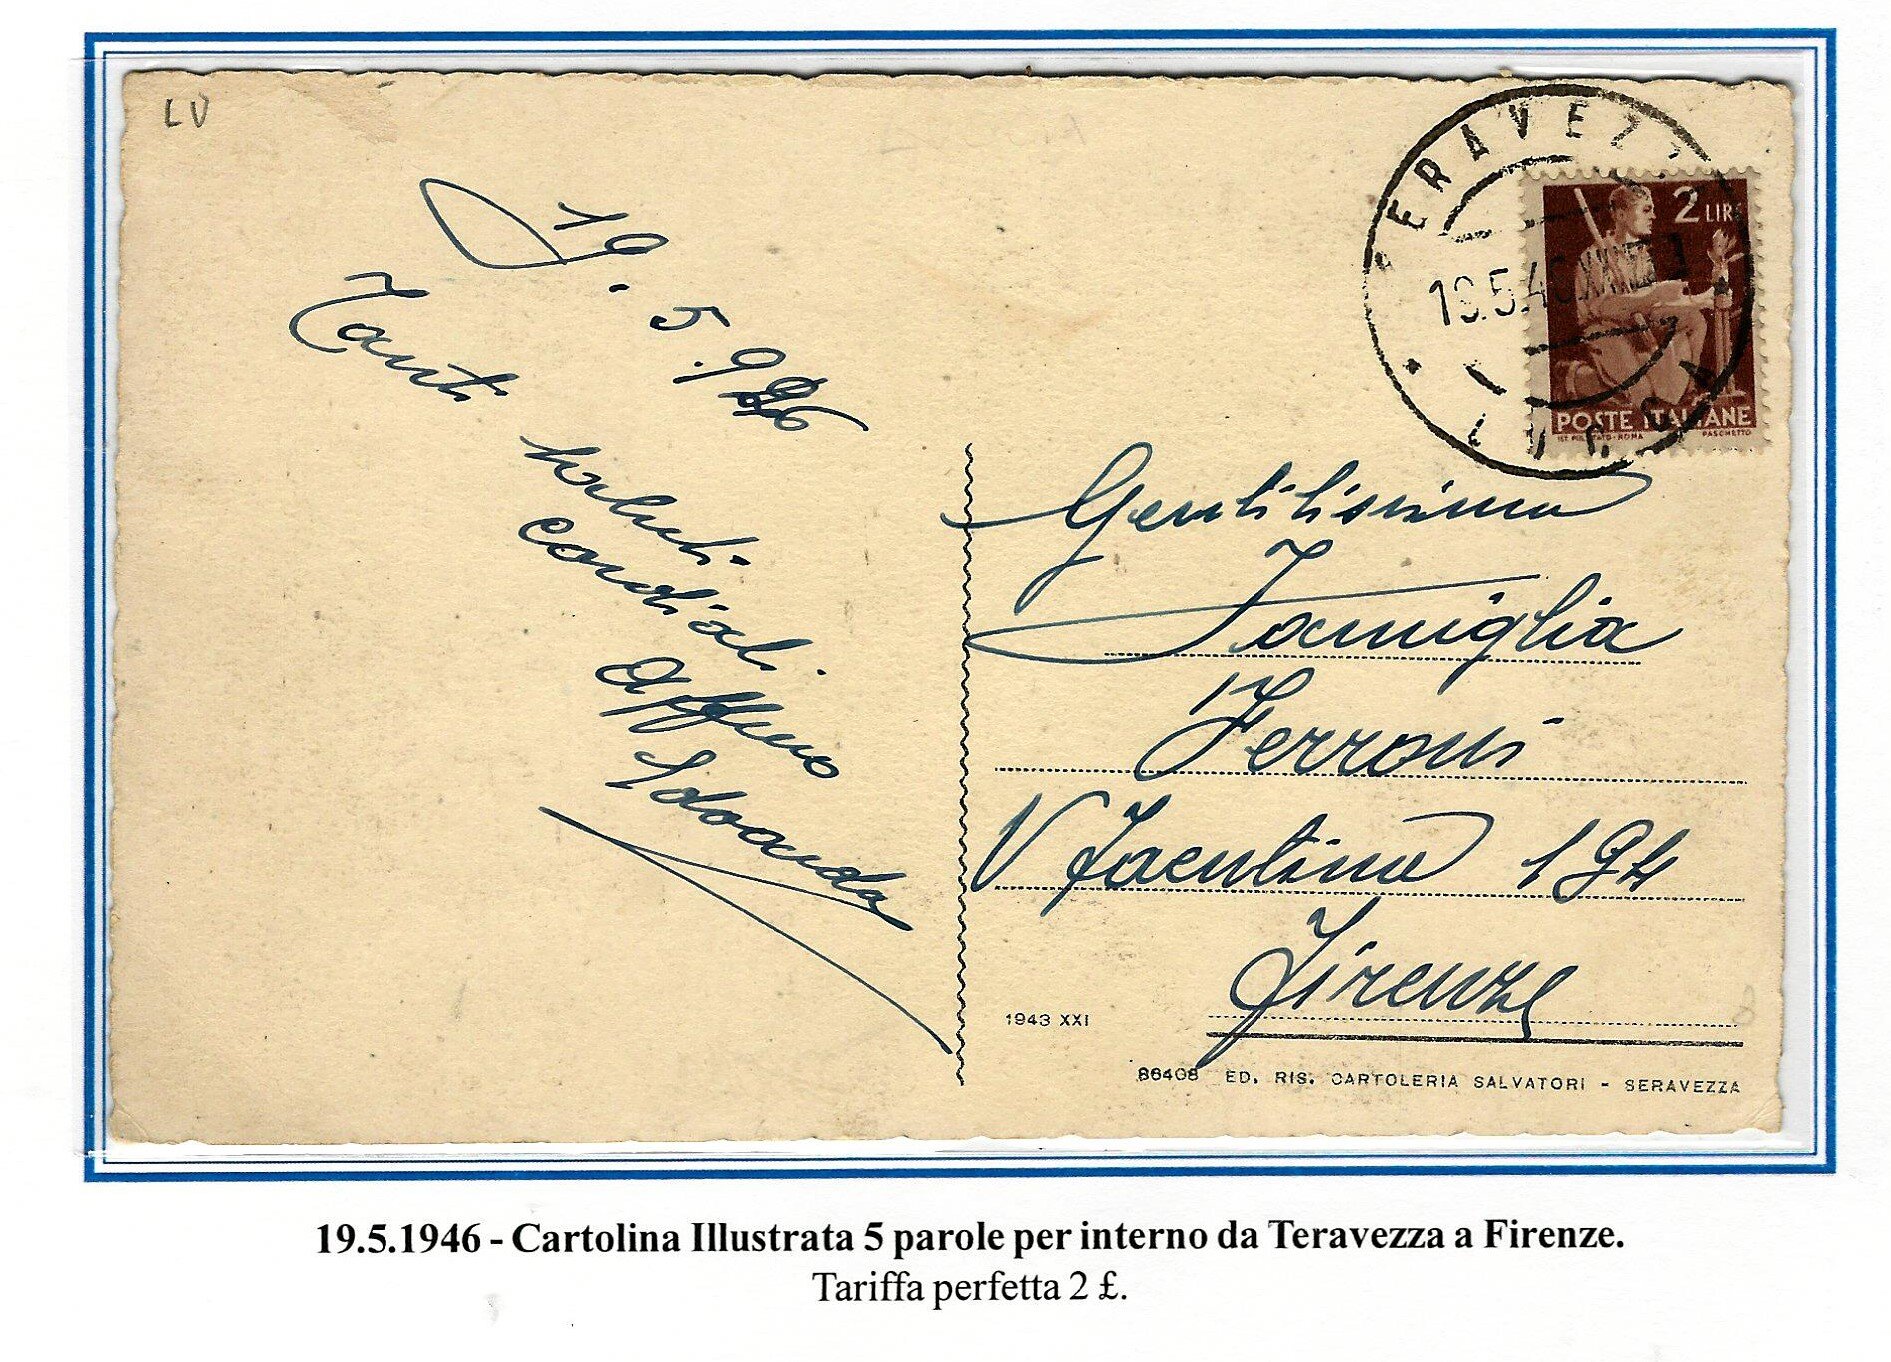 LV
19.5.946
Tanti
saluti
cordiali.
Aff.mo
Edoardo
SERAVEZZA
19.5.46
LUCCA
2 LIRE
POSTE ITALIANE
IST. POL. STATO-ROMA PASCHETTO
Gentilissima
Famiglia
Ferroni
V Faentina 194
Firenze
1943 XXI
86408 ED. RIS. CARTOLERIA SALVATORI - SERAVEZZA
19.5.1946 - Cartolina Illustrata 5 parole per interno da Teravezza a Firenze.
Tariffa perfetta 2 £.